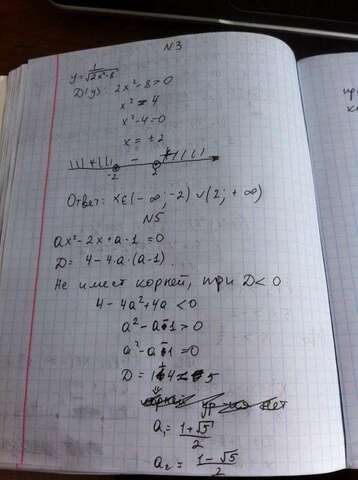 N3
y = 1/√(2x²-8)
D(y): 2x²-8>0
x² = 4
x²-4=0
x = ±2
+ - +
-2 2
Ответ: x∈(-∞; -2) ∪ (2; +∞)
N5
ax²-2x+a-1=0
D = 4-4·a·(a-1)
Не имеет корней, при D<0
4-4a²+4a<0
a²-a-1>0
a²-a-1=0
D = 1+4=5
ур-ия нет
a₁ = (1+√5)/2
a₂ = (1-√5)/2